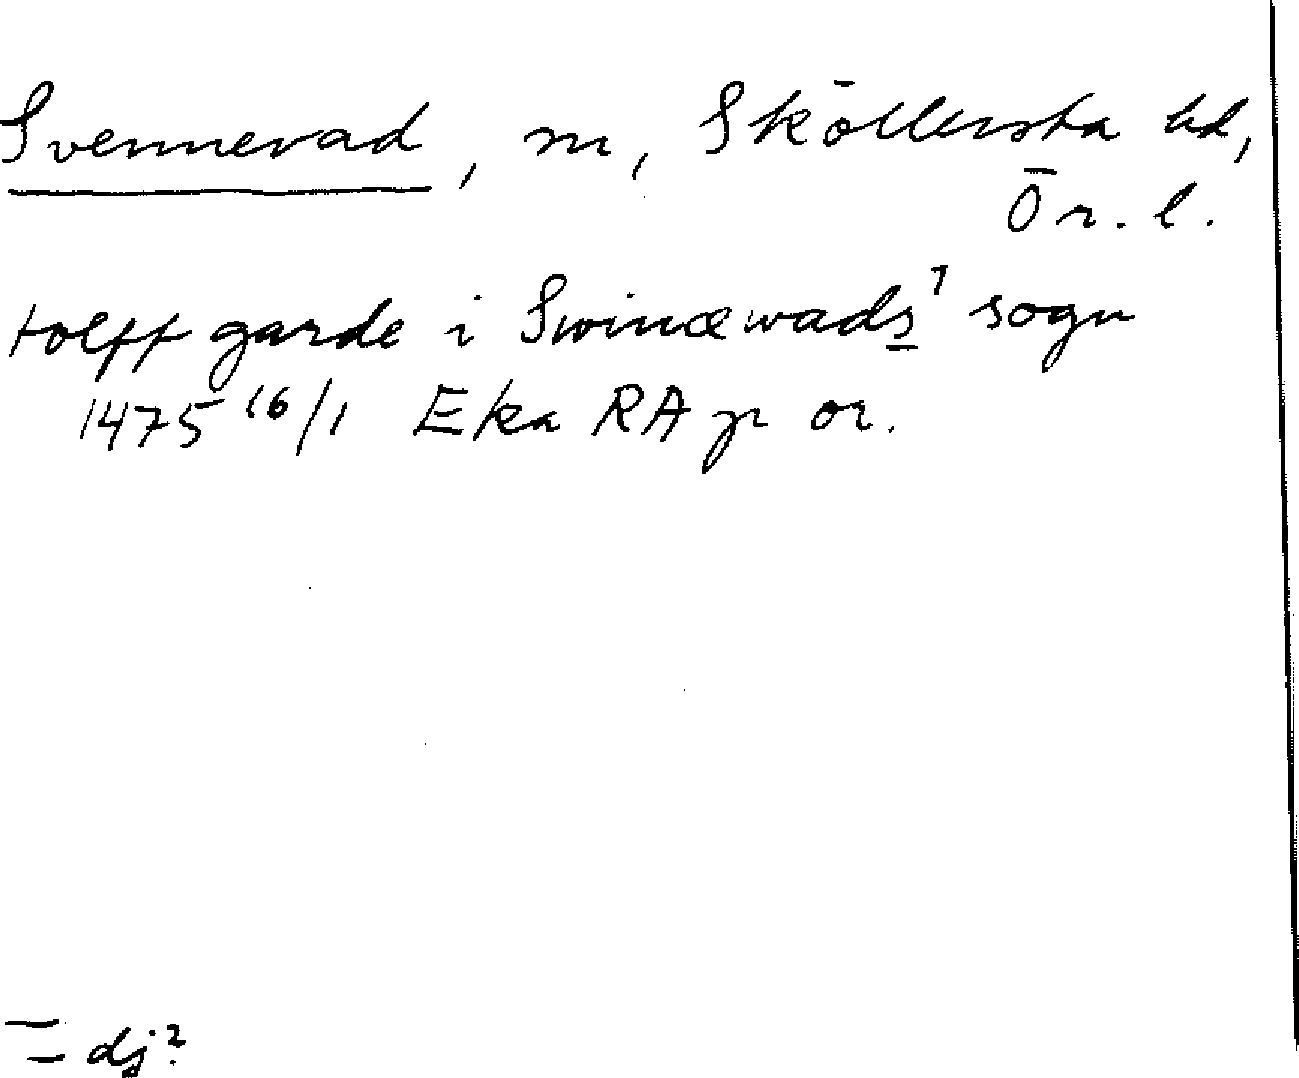 Svennevad, sn, Sköllersta hd,
Ör. l.
tolff garde i Swinæwads¹ sogn
1475 16/1 Eka RA p or.
= dj?